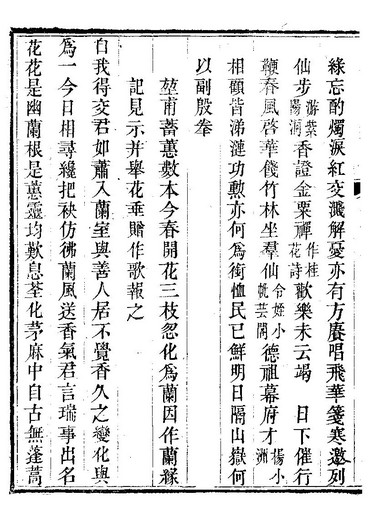 綠忘酌燭淚紅交濺解憂亦有方賡唱飛華箋寒邀列
仙步游紫陽洞香證金粟禪作桂花詩歡樂未云竭 日下催行
鞭春風啓華餞竹林坐羣仙令姪小帆芸閣德祖幕府才楊小洲
相顧皆涕漣功勲亦何為銜恤民已鮮明日隔山嶽何
以副殷拳
堃甫蓄蕙數本今春開花三枝忽化為蘭因作蘭緣
記見示并舉花垂贈作歌報之
自我得交君如蕭入蘭室與善人居不覺香久之變化與
為一今日相尋纔把袂仿彿蘭風送香氣君言瑞事出名
花花是幽蘭根是蕙靈均歎息荃化茅麻中自古無蓬蒿